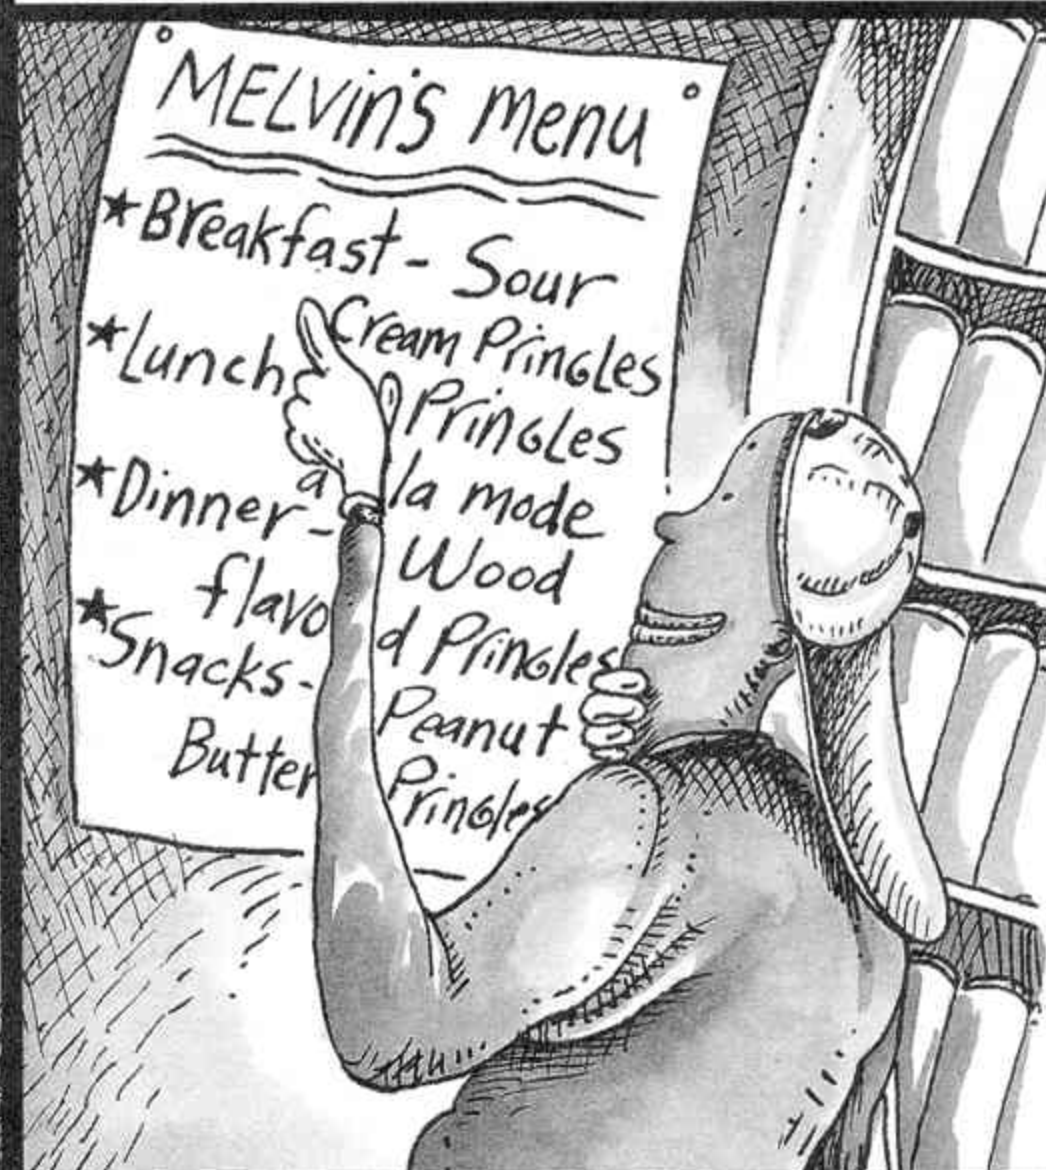 MELVin's menu
★Breakfast - Sour
Cream Pringles
★Lunch Pringles
a la mode
★Dinner - Wood
flavo d Pringles
★Snacks - Peanut
Butter Pringles